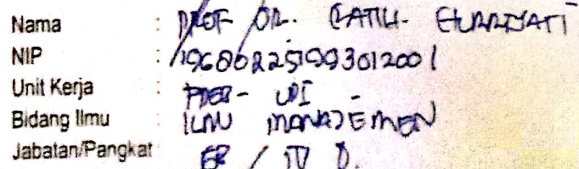 Nama : PROF DR. RATIH HURRIYATI
NIP : 196802251993012001
Unit Kerja : - UPI -
Bidang Ilmu : ILMU MANAJEMEN
Jabatan/Pangkat : / IV D.